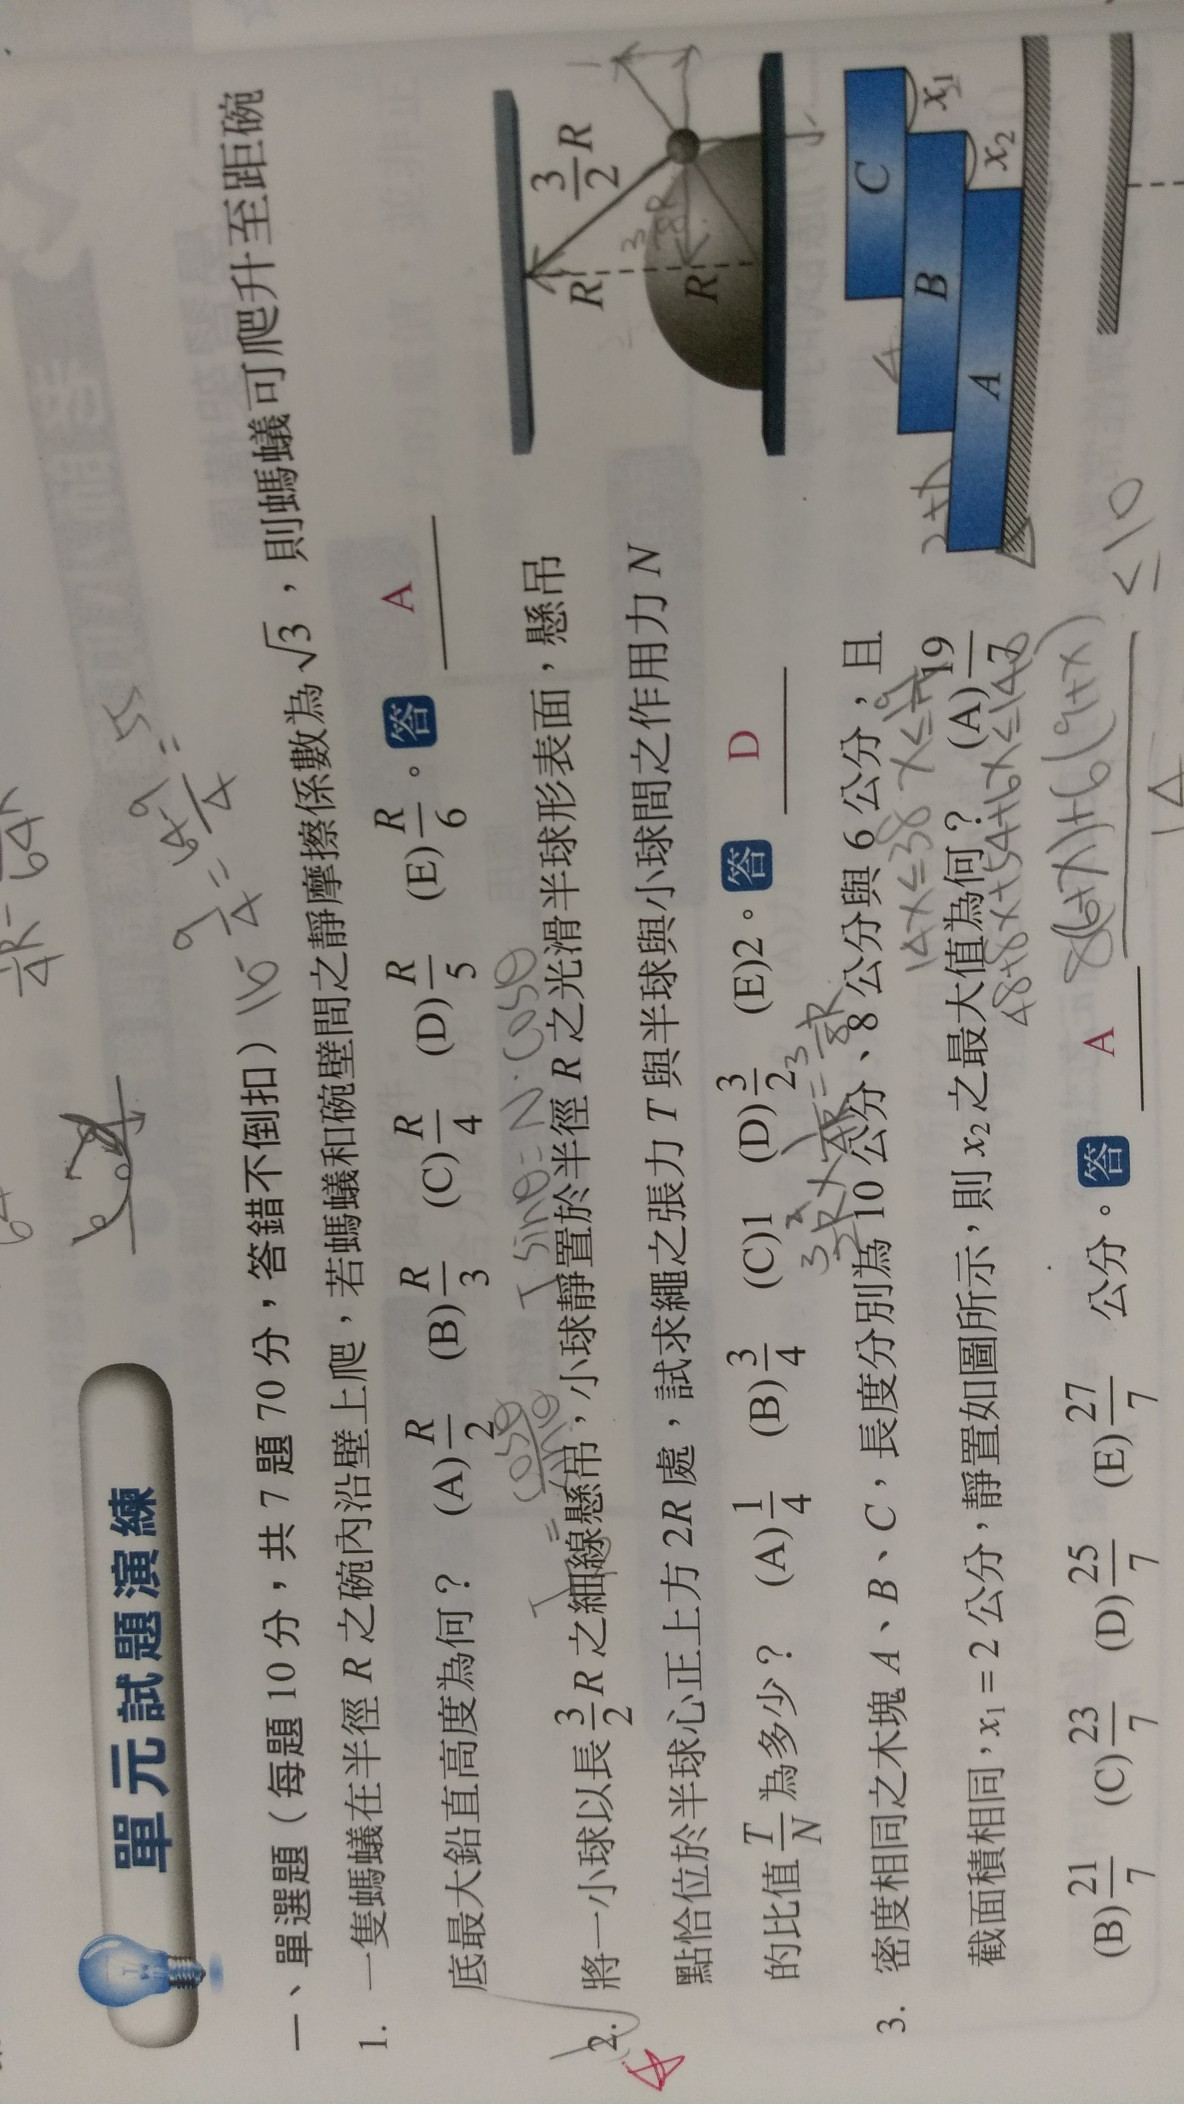 單元試題演練
一、單選題（每題 10 分，共 7 題 70 分，答錯不倒扣）
1. 一隻螞蟻在半徑 R 之碗內沿壁上爬，若螞蟻和碗壁間之靜摩擦係數為 √3，則螞蟻可爬升至距碗
底最大鉛直高度為何？ (A) R/2 (B) R/3 (C) R/4 (D) R/5 (E) R/6。答 A
2. 將一小球以長 3/2 R 之細線懸吊，小球靜置於半徑 R 之光滑半球形表面，懸吊
點恰位於半球心正上方 2R 處，試求繩之張力 T 與半球與小球間之作用力 N
的比值 T/N 為多少？ (A) 1/4 (B) 3/4 (C)1 (D) 3/2 (E)2。答 D
3/2 R
R
R
3. 密度相同之木塊 A、B、C，長度分別為 10 公分、8 公分與 6 公分，且
截面積相同，x₁ = 2 公分，靜置如圖所示，則 x₂ 之最大值為何？ (A) 19/7
(B) 21/7 (C) 23/7 (D) 25/7 (E) 27/7 公分。答 A
C
x₁
B
x₂
A
T sinθ = N · cosθ
14x ≤ 38
48+8x+54+6x ≤ 140
8(6+x)+6(9+x)
≤ 10
14